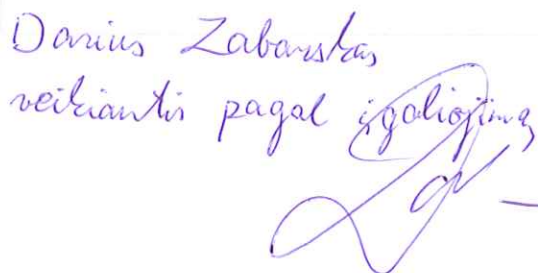 Darius Zabarskas
veikiantis pagal įgaliojimą